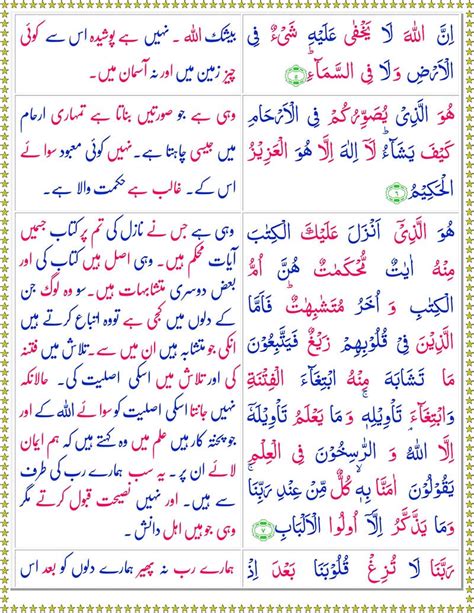 اِنَّ اللّٰهَ لَا يَخْفٰى عَلَيْهِ شَىْءٌ فِى
الْاَرْضِ وَلَا فِى السَّمَآءِؕ ٥
بیشک اللہ ۔ نہیں ہے پوشیدہ اس سے کوئی
چیز زمین میں اور نہ آسمان میں۔
هُوَ الَّذِىْ يُصَوِّرُكُمْ فِى الْاَرْحَامِ
كَيْفَ يَشَآءُؕ لَاۤ اِلٰهَ اِلَّا هُوَ الْعَزِيْزُ
الْحَكِيْمُ ٦
وہی ہے جو صورتیں بناتا ہے تمہاری ارحام
میں جیسی چاہتا ہے۔ نہیں کوئی معبود سوائے
اس کے۔ غالب ہے حکمت والا ہے۔
هُوَ الَّذِىْۤ اَنْزَلَ عَلَيْكَ الْكِتٰبَ
مِنْهُ اٰيٰتٌ مُّحْكَمٰتٌ هُنَّ اُمُّ
الْكِتٰبِ وَ اُخَرُ مُتَشٰبِهٰتٌؕ فَاَمَّا
الَّذِيْنَ فِىْ قُلُوْبِهِمْ زَيْغٌ فَيَتَّبِعُوْنَ
مَا تَشَابَهَ مِنْهُ ابْتِغَآءَ الْفِتْنَةِ
وَابْتِغَآءَ تَاْوِيْلِهٖۚ وَمَا يَعْلَمُ تَاْوِيْلَهٗۤ
اِلَّا اللّٰهُ وَ الرّٰسِخُوْنَ فِى الْعِلْمِ
يَقُوْلُوْنَ اٰمَنَّا بِهٖۙ كُلٌّ مِّنْ عِنْدِ رَبِّنَاۚ
وَمَا يَذَّكَّرُ اِلَّاۤ اُولُوا الْاَلْبَابِ ٧
وہی ہے جس نے نازل کی تم پر کتاب جسمیں
آیات محکم ہیں۔ وہی اصل ہیں کتاب کی اور
بعض دوسری متشابہات ہیں۔ سو وہ لوگ جن
کے دلوں میں کجی ہے تو وہ اتباع کرتے ہیں
انکی جو متشابہ ہیں ان میں سے۔ تلاش میں فتنہ
کی اور تلاش میں اسکی اصلیت کی۔ حالانکہ
نہیں جانتا اسکی اصلیت کو سوائے اللہ کے اور
جو پختہ کار ہیں علم میں وہ کہتے ہیں کہ ہم ایمان
لائے ان پر۔ یہ سب ہمارے رب کی طرف
سے ہیں۔ اور نہیں نصیحت قبول کرتے مگر
وہی جو ہیں اہل دانش۔
رَبَّنَا لَا تُزِغْ قُلُوْبَنَا بَعْدَ اِذْ
ہمارے رب نہ پھیر ہمارے دلوں کو بعد اس